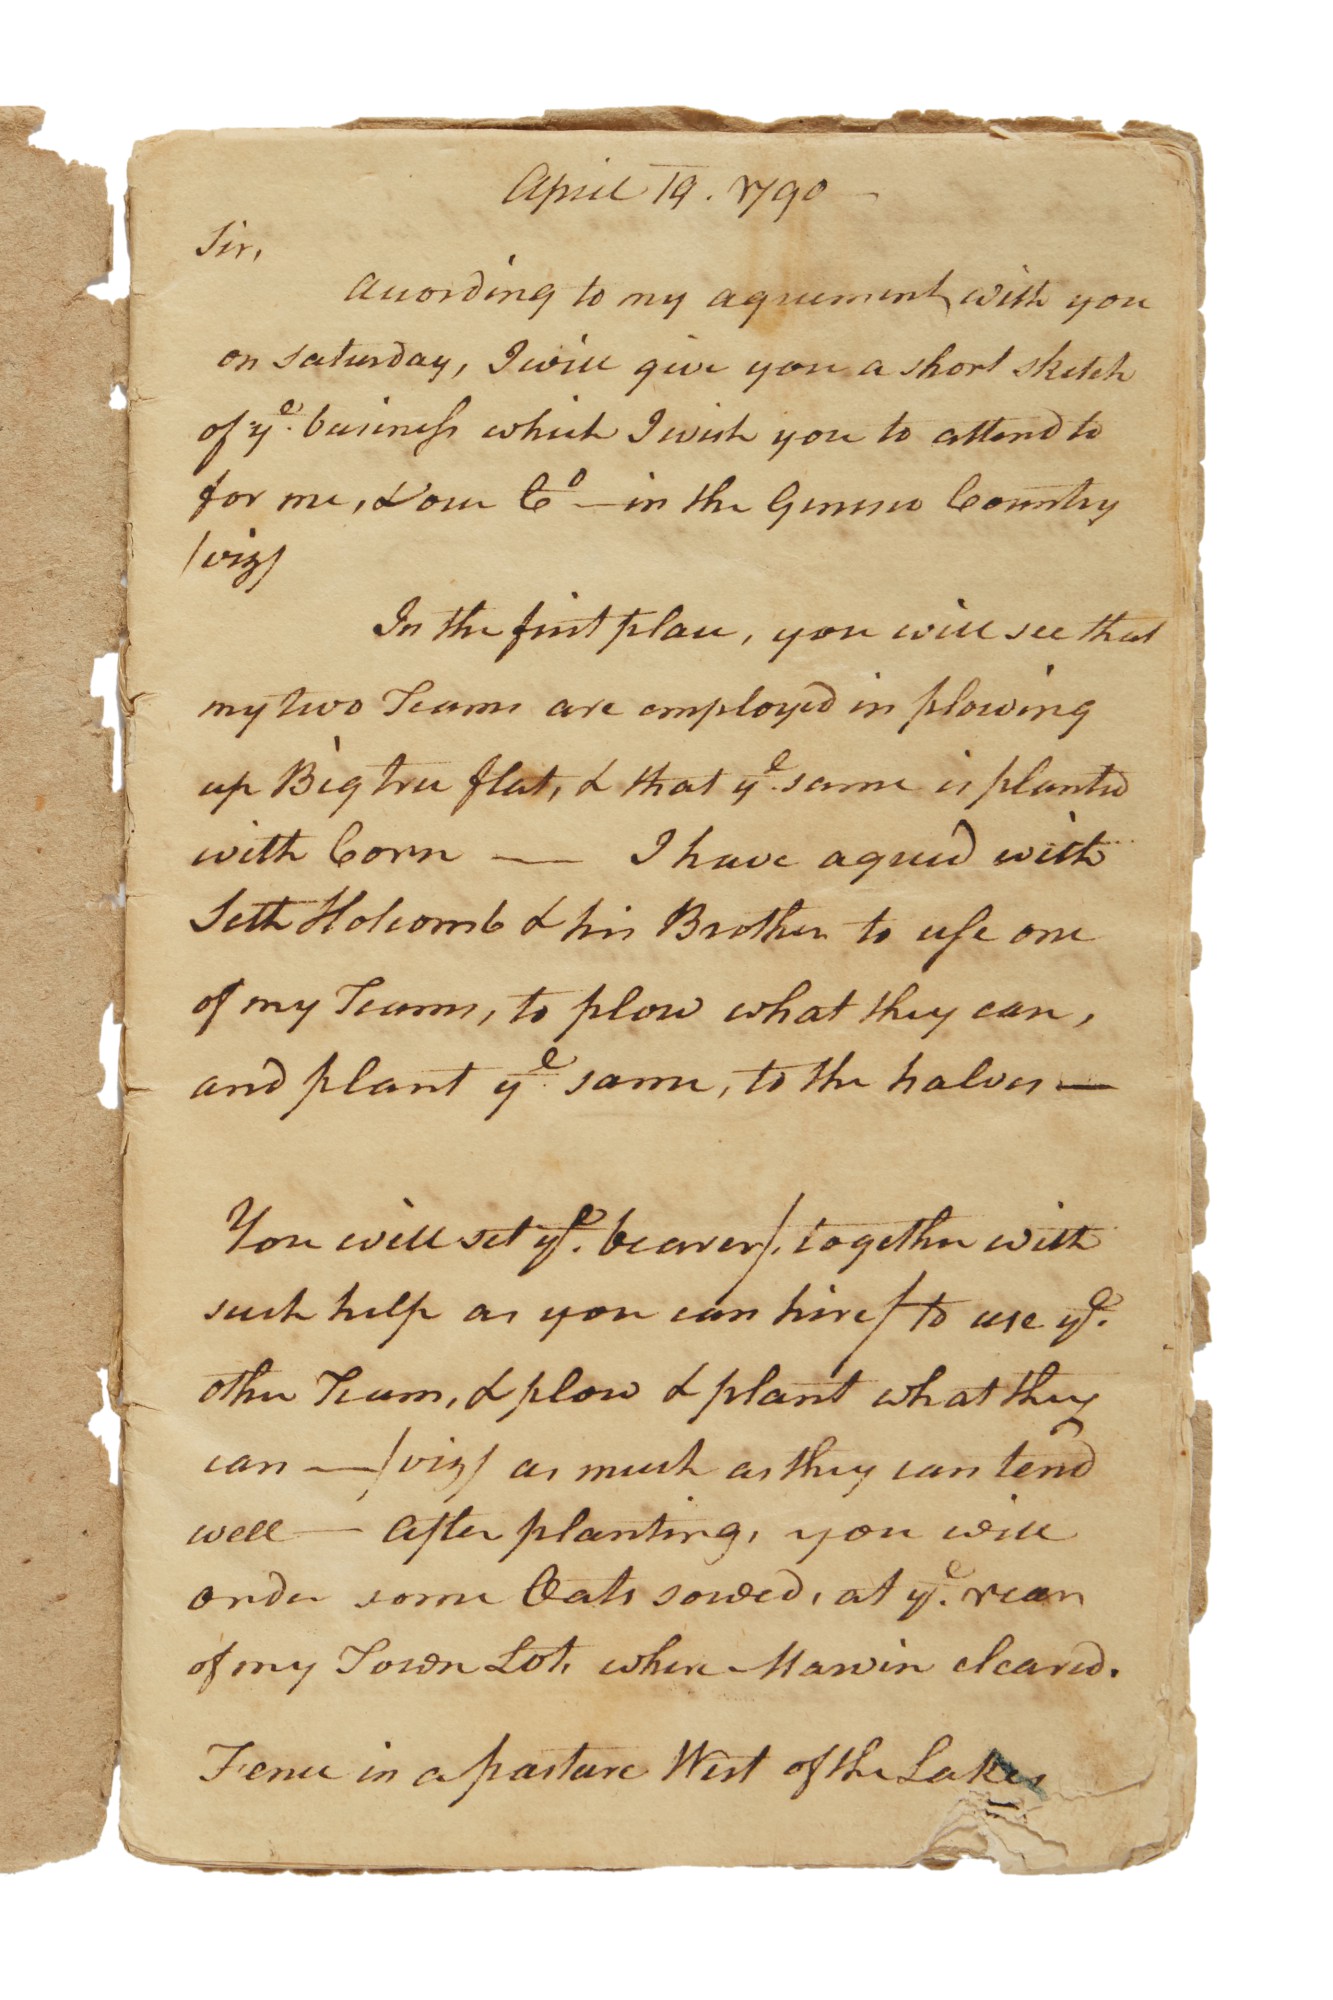 April 19. 1790 —
Sir,
According to my agreement with you
on saturday, I will give you a short sketch
of ye. business which I wish you to attend to
for me, & our Co — in the Genesee Country
/viz/
In the first place, you will see that
my two Teams are employed in plowing
up Bigtree flat, & that ye. same is planted
with Corn — I have agreed with
Seth Holcomb & his Brother to use one
of my Teams, to plow what they can,
and plant ye. same, to the halves —
You will set ye. bearer/, together with
such help as you can hire/ to use ye.
other Team, & plow & plant what they
can — /viz/ as much as they can tend
well — After planting, you will
order some Oats sowed, at ye. rear
of my Town Lot, where Marvin cleared.
Fence in a pasture West of the Lakes